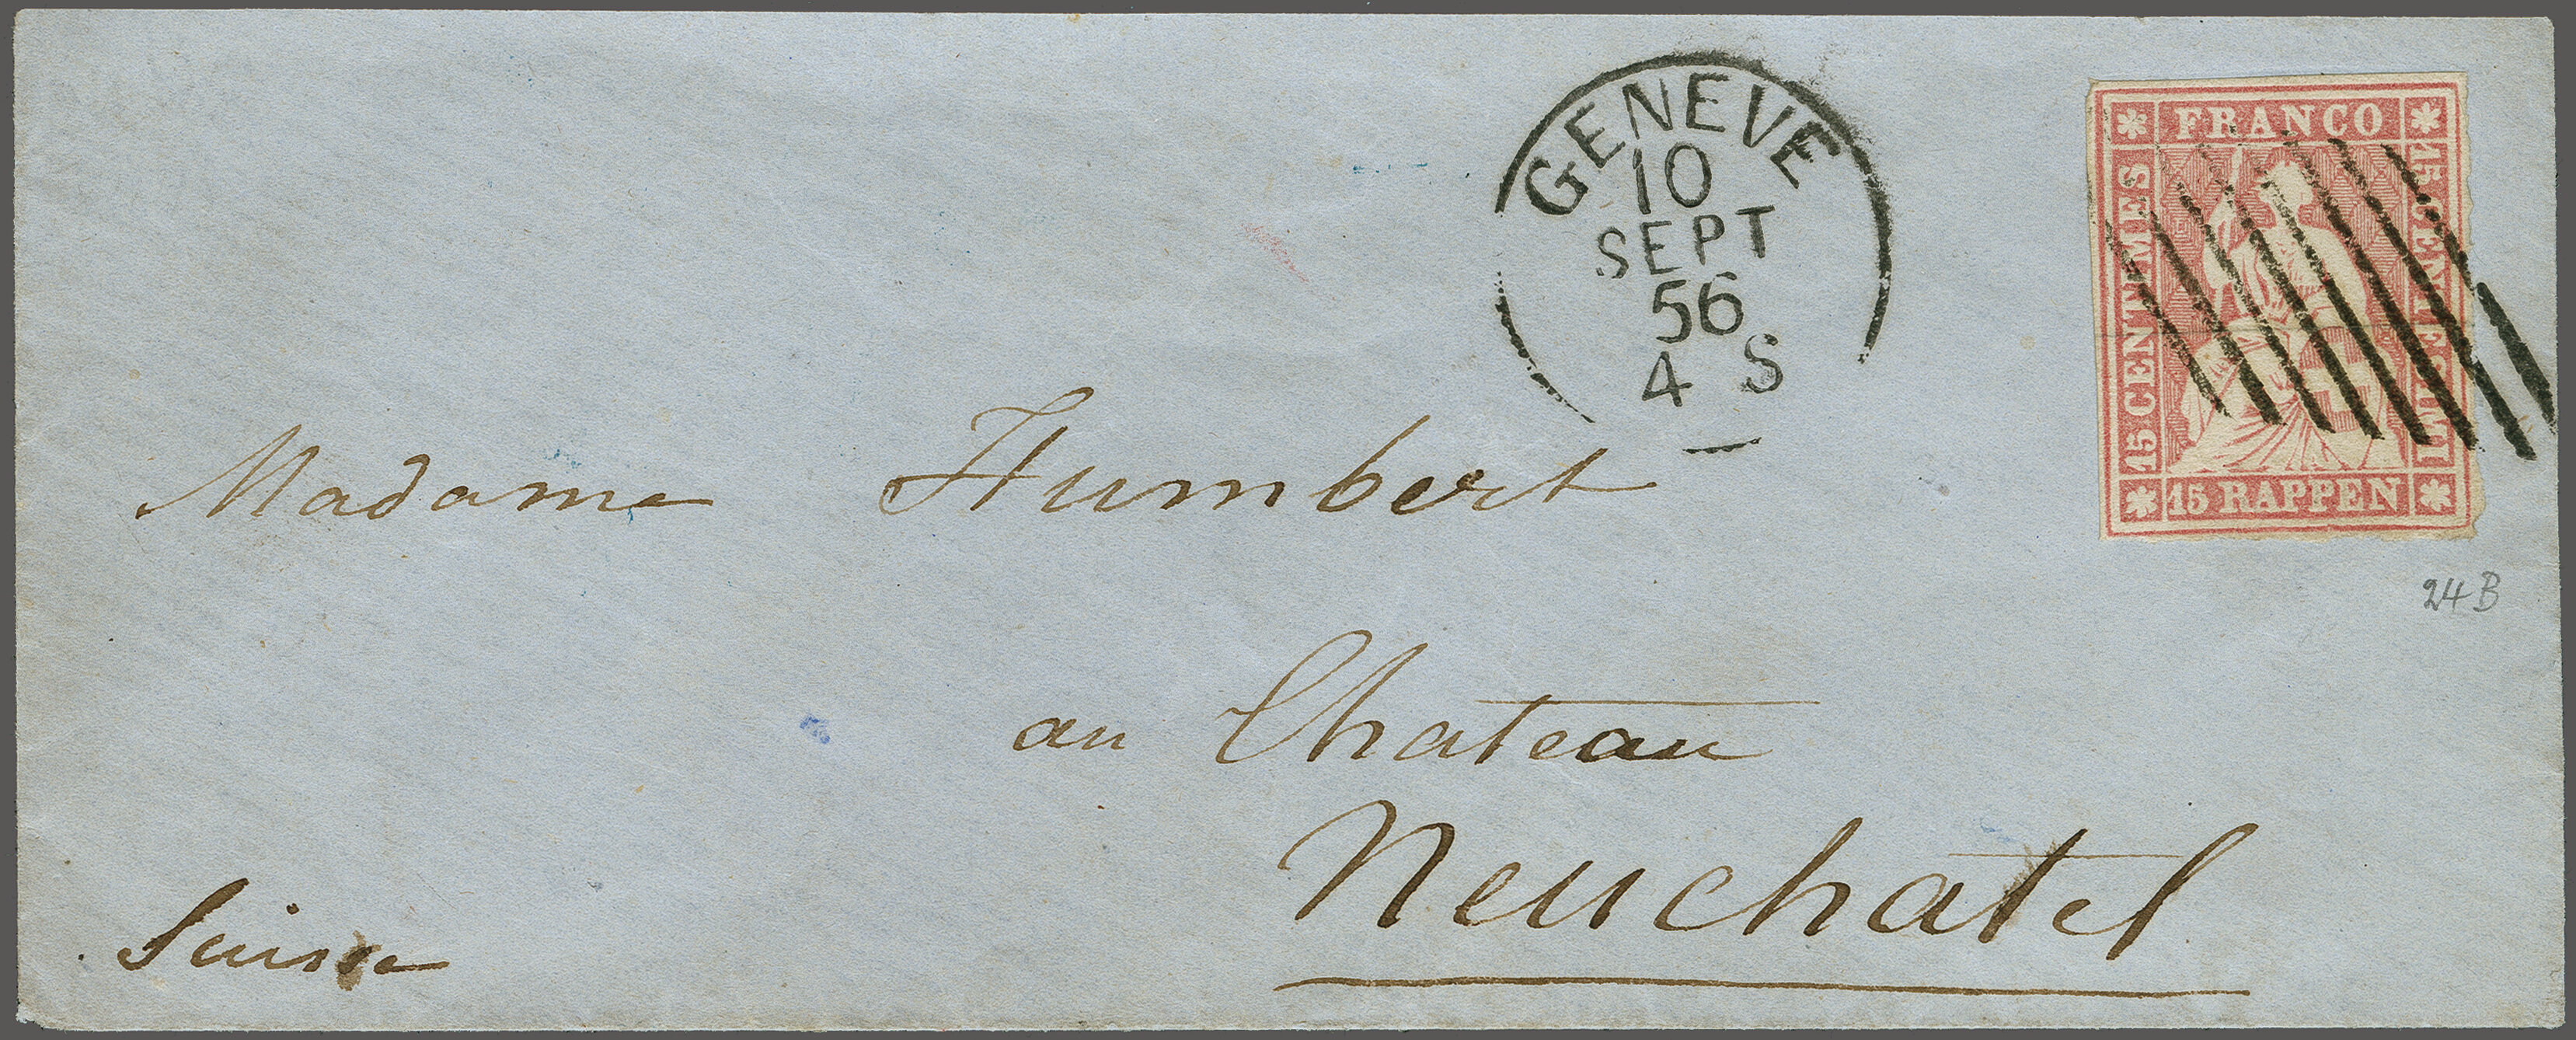 GENEVE
10
SEPT
56
4 S
FRANCO
15 CENTIMES
15 CENTESIMI
15 RAPPEN
24 B
Madame Humbert
au Chateau
Neuchatel
Suisse